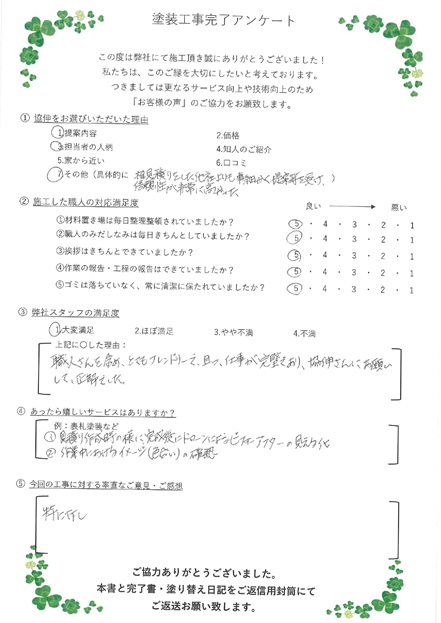 塗装工事完了アンケート
この度は弊社にて施工頂き誠にありがとうございました！
私たちは、このご縁を大切にしたいと考えております。
つきましては更なるサービス向上や技術向上のため
「お客様の声」のご協力をお願致します。
① 協伸をお選びいただいた理由
1.提案内容 2.価格
3.担当者の人柄 4.知人のご紹介
5.家から近い 6.口コミ
7.その他（具体的に 相見積りをした他社よりも事細かく提案等を受け、）
信頼性が非常に高かった
② 施工した職人の対応満足度 良い 悪い
①材料置き場は毎日整理整頓されていましたか？ 5 ・ 4 ・ 3 ・ 2 ・ 1
②職人のみだしなみは毎日きちんとしていましたか？ 5 ・ 4 ・ 3 ・ 2 ・ 1
③挨拶はきちんとできていましたか？ 5 ・ 4 ・ 3 ・ 2 ・ 1
④作業の報告・工程の報告はできていましたか？ 5 ・ 4 ・ 3 ・ 2 ・ 1
⑤ゴミは落ちていなく、常に清潔に保たれていましたか？ 5 ・ 4 ・ 3 ・ 2 ・ 1
③ 弊社スタッフの満足度
1.大変満足 2.ほぼ満足 3.やや不満 4.不満
上記に○した理由：
職人さんも含め、とてもフレンドリーで、且つ、仕事が完璧であり、協伸さんにお願い
して、正解でした。
④ あったら嬉しいサービスはありますか？
例：表札塗装など
① 見積り作成時の様に、完成後にドローンによるビフォーアフターの見える化
② 作業中におけるイメージ（色合い）の確認
⑤ 今回の工事に対する率直なご意見・ご感想
特に無し
ご協力ありがとうございました。
本書と完了書・塗り替え日記をご返信用封筒にて
ご返送お願い致します。